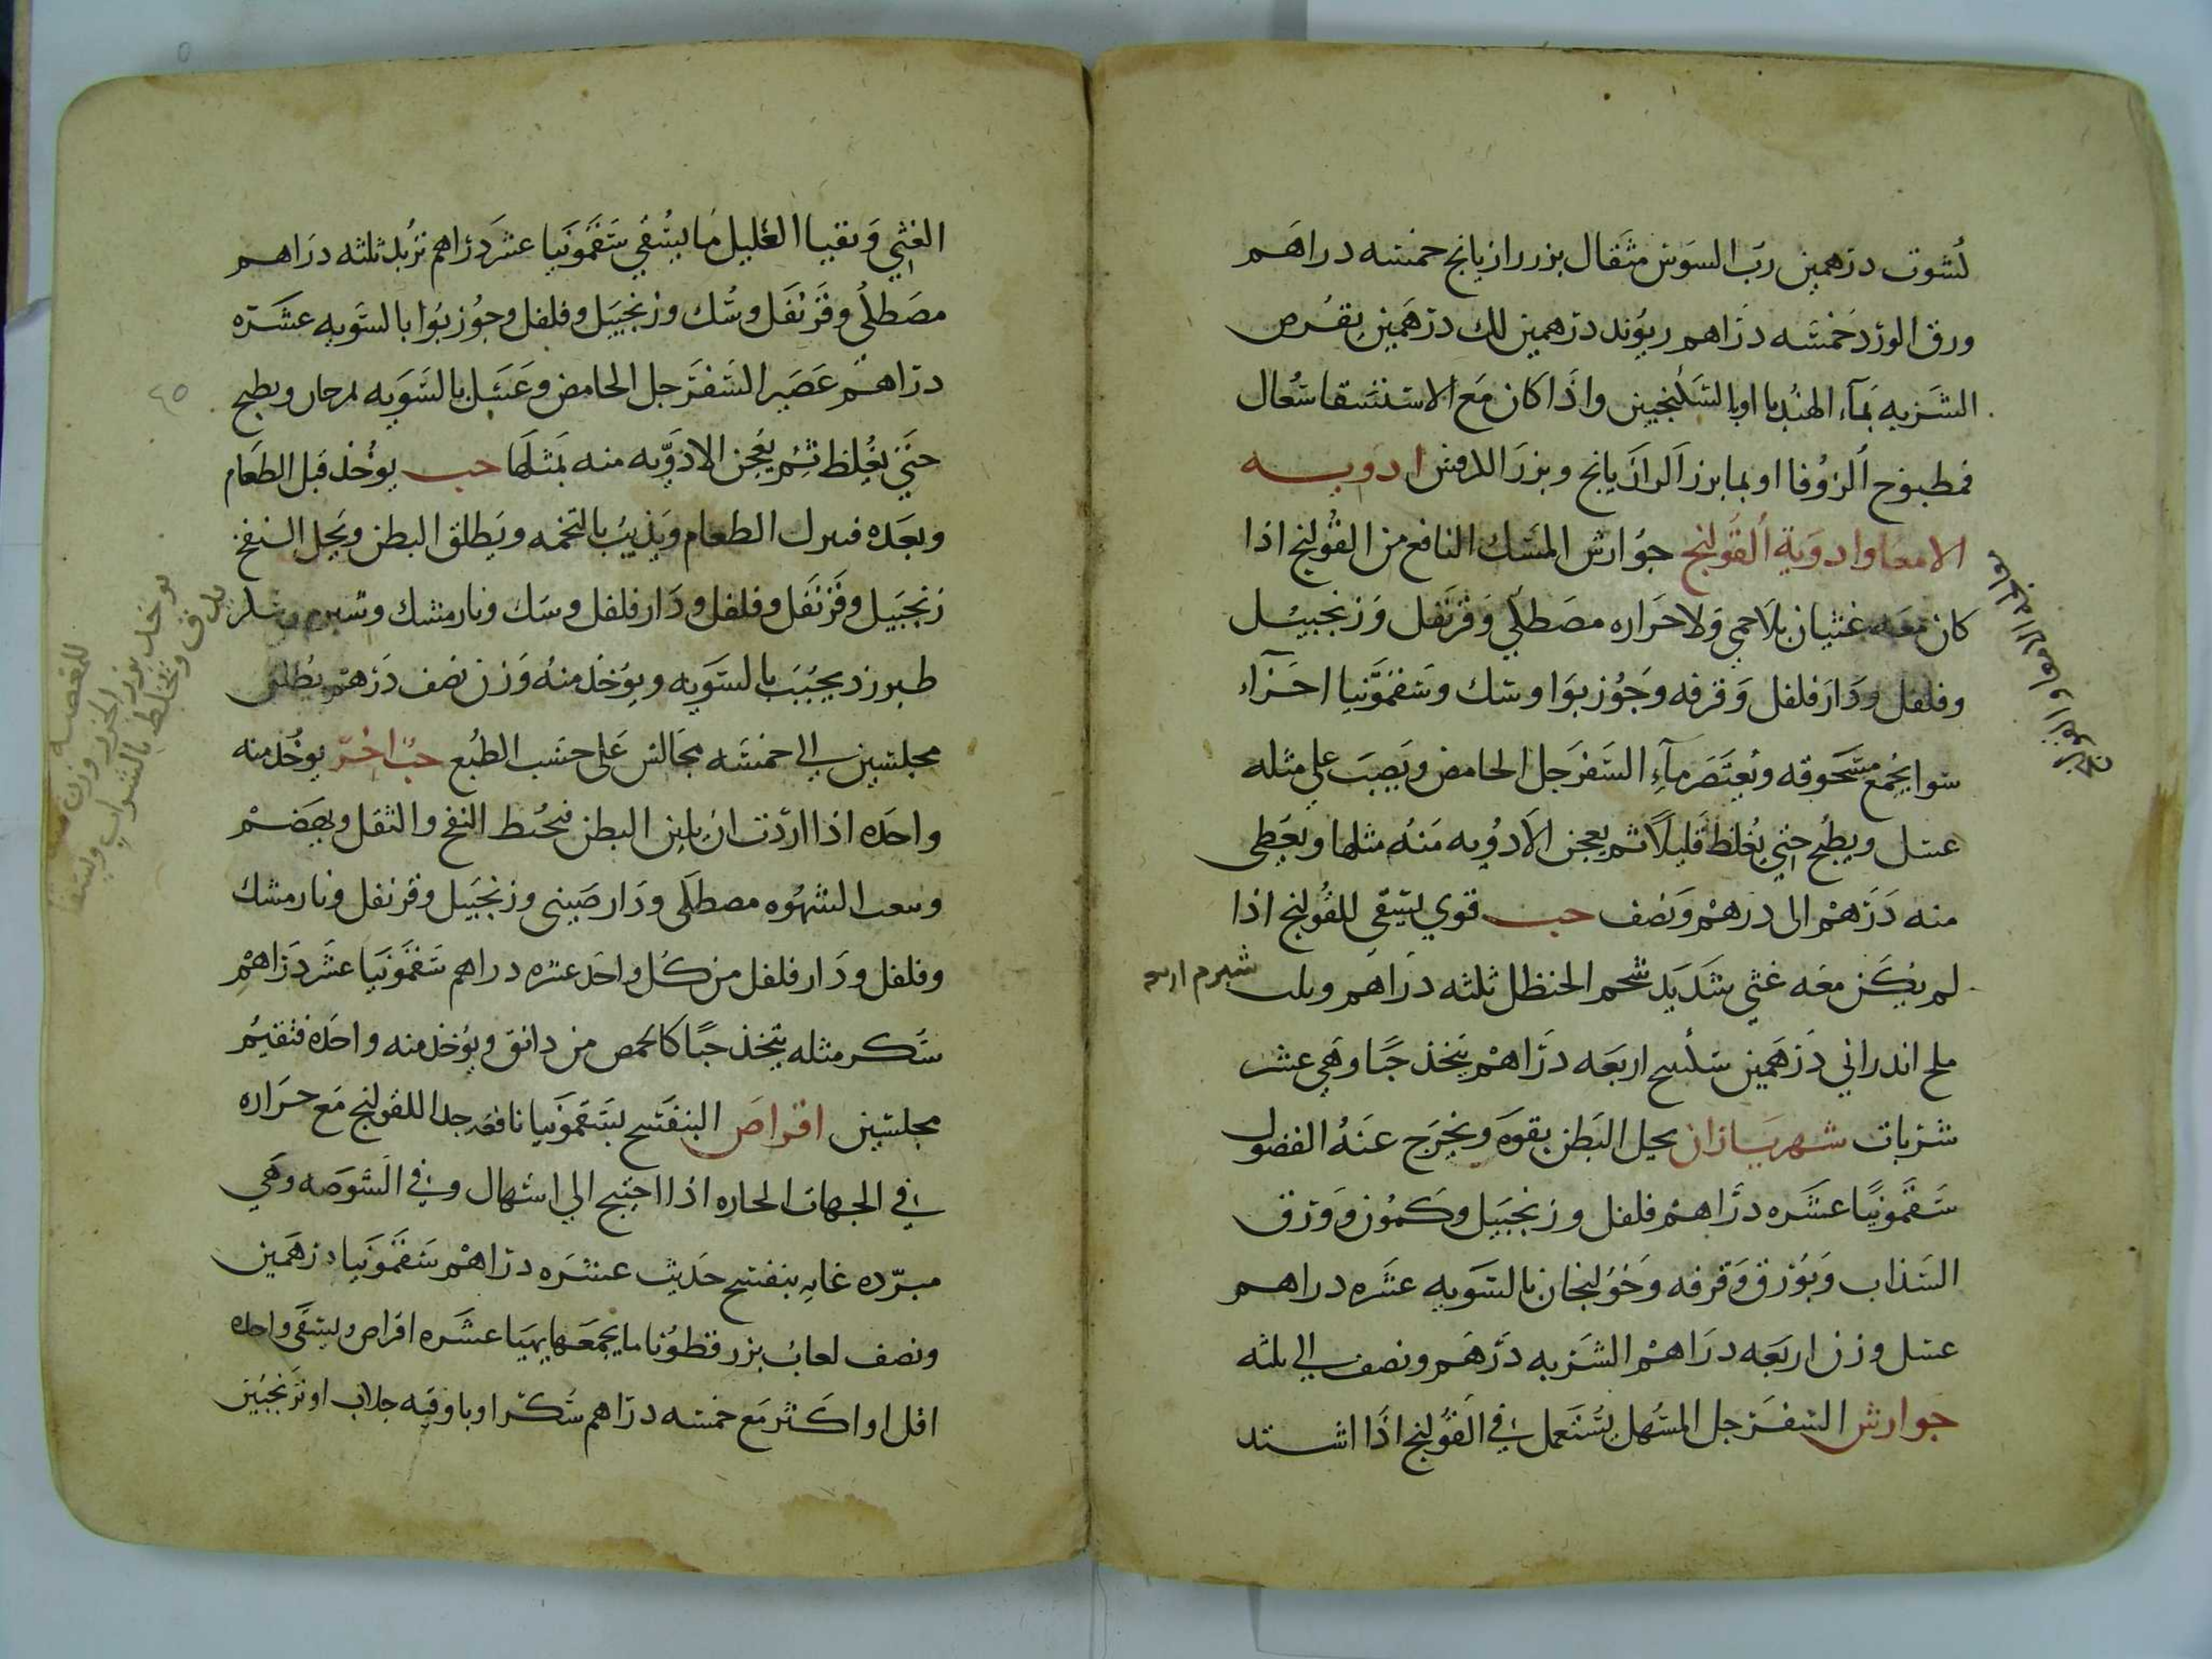 كشوث درهمين رب السوس مثقال بزر رازيانج خمسه دراهم
ورق الورد خمسه دراهم ريوند درهمين لك درهمين يقرص
الشربه بماء الهندبا او بالسكنجبين واذا كان مع الاستسقا سعال
فمطبوخ الزوفا او بما بزر الرازيانج وبزر الكرفس ادويه
الامعا وادوية القولنج جوارش المسك النافع من القولنج اذا
كان معه غثيان بلا حمي ولا حراره مصطكي وقرنفل وزنجبيل
وفلفل ودارفلفل وقرفه وجوزبوا وسك وسقمونيا اجزاء
سوا يجمع مسحوقه ويعتصر ماء السفرجل الحامض ويصب علي مثله
عسل ويطبخ حتي يغلظ قليلا ثم يعجن الادويه منه مثلها ويعطي
منه درهم الى درهم ونصف حب قوي يسقي للقولنج اذا
لم يكن معه غثي شديد شحم الحنظل ثلثه دراهم شبرم
ملح اندراني درهمين سكبينج اربعه دراهم يتخذ حبا وهي عشر
شربات شهرياران يحل البطن بقوه ويخرج عنه الفضول
سقمونيا عشره دراهم فلفل وزنجبيل وكمون وورق
السذاب وبورق وقرفه وخولنجان بالسويه عشره دراهم
عسل وزن اربعه دراهم الشربه درهم ونصف الي ثلثه
جوارش السفرجل المسهل يستعمل في القولنج اذا اشتد
الغثي وتقيا العليل ما يسقي سقمونيا عشر دراهم تربد ثلثه دراهم
مصطكي وقرنفل وسك وزنجبيل وفلفل وجوزبوا بالسويه عشره
دراهم عصير السفرجل الحامض وعسل بالسويه يمزجان ويطبخ
حتي يغلظ ثم يعجن الادويه منه بمثلها حب يوخذ قبل الطعام
وبعده الطعام ويذيب بالتخمه ويطلق البطن ويحل النفخ
زنجبيل وقرنفل وفلفل ودارفلفل وسك ونارمشك وشبرم وسكر
طبرزد يحبب بالسويه ويوخذ منه وزن نصف درهم يطلق
مجلسين الي خمسه مجالس علي حسب الطبع حب اخر يوخذ منه
واحده اذا اردت ان يلين البطن فيحط النفخ والثقل ويهضم
الشهوه مصطكي ودارصيني وزنجبيل وقرنفل ونارمشك
وفلفل ودارفلفل من كل واحد عشره دراهم سقمونيا عشر دراهم
سكر مثله يتخذ حبا كالحمص من دانق ويوخذ منه واحده فتقيم
مجلسين اقراص البنفسج بسقمونيا نافعه جدا للقولنج مع حراره
في الجهات الحاره اذا احتيج الي اسهال وفي الشوصه وهي
مبرده غايه بنفسج حديث عشره دراهم سقمونيا درهمين
ونصف لعاب بزر قطونا ما يجمعها يهيا عشره اقراص ويسقى واحده
اقل او اكثر مع خمسه دراهم سكر او باوقيه جلاب او ترنجبين
٤٥